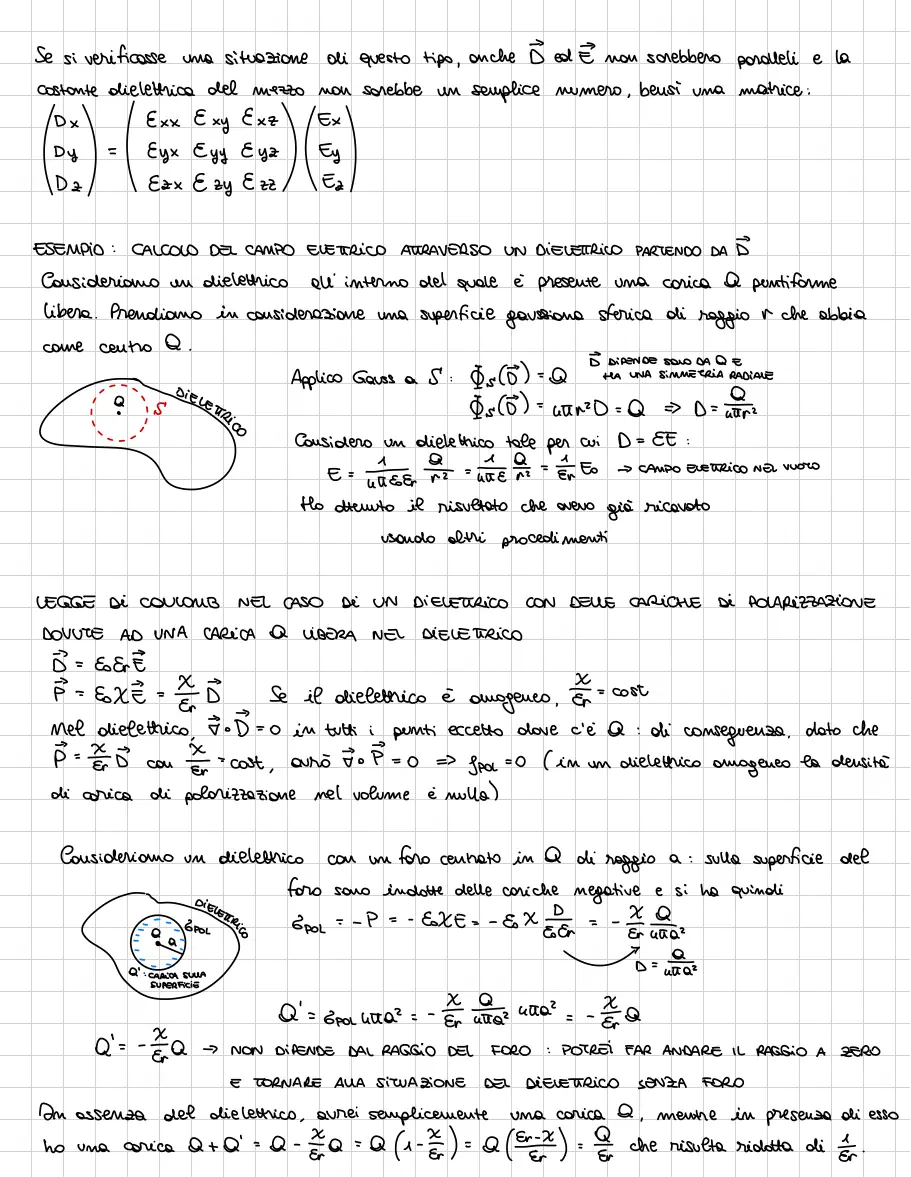 Se si verificasse una situazione di questo tipo, anche D⃗ ed E⃗ non sarebbero paralleli e la
costante dielettrica del mezzo non sarebbe un semplice numero, bensì una matrice:
(Dx) = (εxx εxy εxz) (Ex)
(Dy) = (εyx εyy εyz) (Ey)
(Dz) = (εzx εzy εzz) (Ez)
ESEMPIO: CALCOLO DEL CAMPO ELETTRICO ATTRAVERSO UN DIELETTRICO PARTENDO DA D⃗
Consideriamo un dielettrico all'interno del quale è presente una carica Q puntiforme
libera. Prendiamo in considerazione una superficie gaussiana sferica di raggio r che abbia
come centro Q.
Q S DIELETTRICO
Applico Gauss a S: Φs(D⃗) = Q
D⃗ DIPENDE SOLO DA Q E
HA UNA SIMMETRIA RADIALE
Φs(D⃗) = 4πr²D = Q ⇒ D = Q/4πr²
Considero un dielettrico tale per cui D = εE:
E = 1/4πε₀εr Q/r² = 1/4πε Q/r² = 1/εr E₀ → CAMPO ELETTRICO NEL VUOTO
Ho ottenuto il risultato che avevo già ricavato
usando altri procedimenti
LEGGE DI COULOMB NEL CASO DI UN DIELETTRICO CON DELLE CARICHE DI POLARIZZAZIONE
DOVUTE AD UNA CARICA Q LIBERA NEL DIELETTRICO
D⃗ = ε₀εrE⃗
P⃗ = ε₀χE⃗ = χ/εr D⃗ Se il dielettrico è omogeneo, χ/εr = cost
Nel dielettrico, ∇⃗∘D⃗ = 0 in tutti i punti eccetto dove c'è Q: di conseguenza, dato che
P⃗ = χ/εr D⃗ con χ/εr = cost, avrò ∇⃗∘P⃗ = 0 ⇒ ρPOL = 0 (in un dielettrico omogeneo la densità
di carica di polarizzazione nel volume è nulla)
Consideriamo un dielettrico con un foro centrato in Q di raggio a: sulla superficie del
foro sono indotte delle cariche negative e si ha quindi
DIELETTRICO
σPOL
Q a
Q': CARICA SULLA
SUPERFICIE
σPOL = -P = -ε₀χE = -ε₀χ D/ε₀εr = -χ/εr Q/4πa²
D = Q/4πa²
Q' = σPOL 4πa² = -χ/εr Q/4πa² 4πa² = -χ/εr Q
Q' = -χ/εr Q → NON DIPENDE DAL RAGGIO DEL FORO: POTREI FAR ANDARE IL RAGGIO A ZERO
E TORNARE ALLA SITUAZIONE DEL DIELETTRICO SENZA FORO
In assenza del dielettrico, avrei semplicemente una carica Q, mentre in presenza di esso
ho una carica Q+Q' = Q - χ/εr Q = Q(1 - χ/εr) = Q(εr-χ/εr) = Q/εr che risulta ridotta di 1/εr.